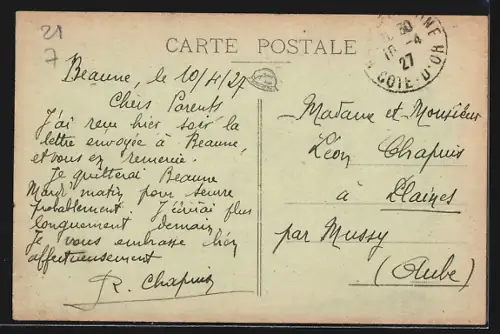 21
7
CARTE POSTALE
BEAUNE
10-4
27
COTE-D'OR
Beaune, le 10/4/27
Chers Parents
J'ai reçu hier soir la
lettre envoyée à Beaune,
et vous en remercie.
Je quitterai Beaune
Mardi matin pour Seurre
probablement. J'écrirai plus
longuement demain
Je vous embrasse bien
affectueusement
R. Chapuis
Madame et Monsieur
Léon Chapuis
à Plaines
par Mussy
(Aube)